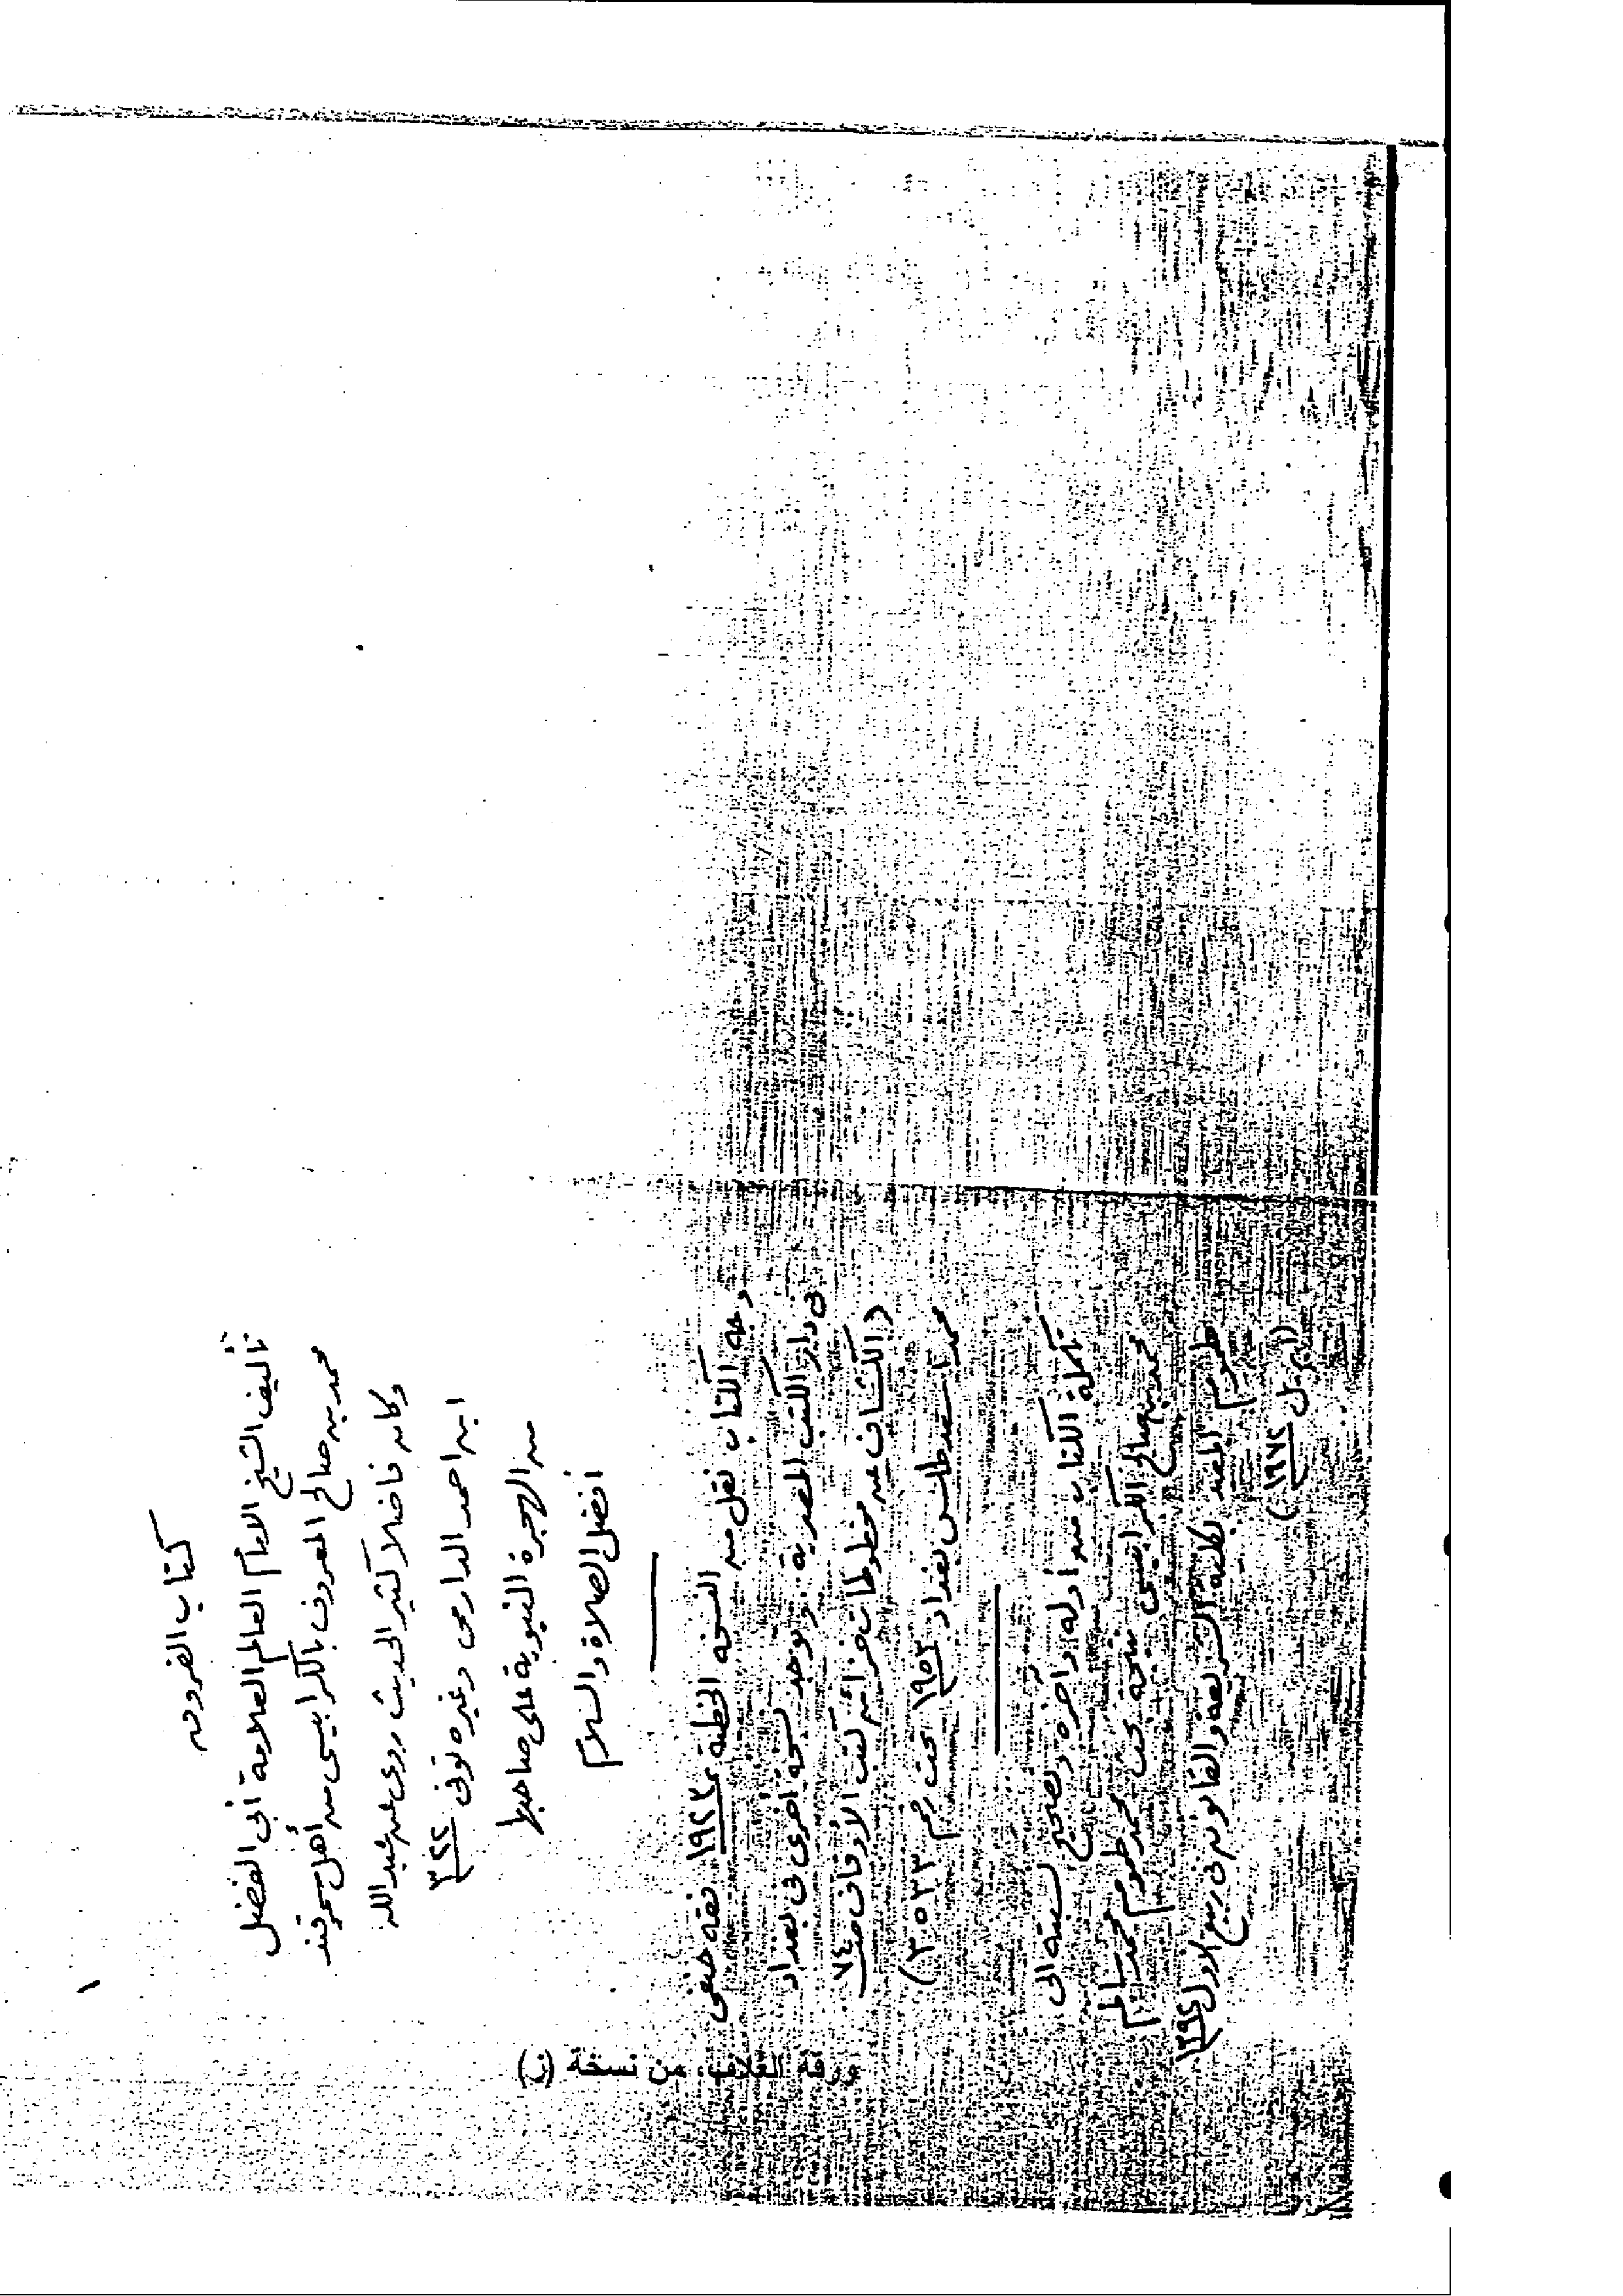 ١
كتاب الفروق
تأليف الشيخ الامام العالم العلامة أبى الفضل
محمد بن صالح المعروف بالكرابيسى من أهل سمرقند
وكان فاضلا كثير الحديث روى عن عبد الله
ابن احمد الدارمى وغيره توفى ٣٢٢
من الهجرة النبوية على صاحبها
أفضل الصلاة والسلام
وجه الكتاب نقل من النسخة الخطية ١٩٢٣ فقه حنفى
فى دار الكتب المصرية وتوجد نسخة أخرى فى بغداد
(الكشاف عن مخطوطات خزائن كتب الأوقاف ص ٧٤
محمد أسعد طلس بغداد ١٩٥٣ تحت رقم ٣٥٣٣)
تكملة الكتاب من أوله وآخره وتصحيح نسبته الى
محمد بن صالح الكرابيسى بتحه محمد طموم محمد سالم
طموم المعيد بكلية الشريعة والقانون فى ربيع الاول ١٣٩٤
(ابريل ١٩٧٤)
ورقة الغلاف من نسخة (ن)